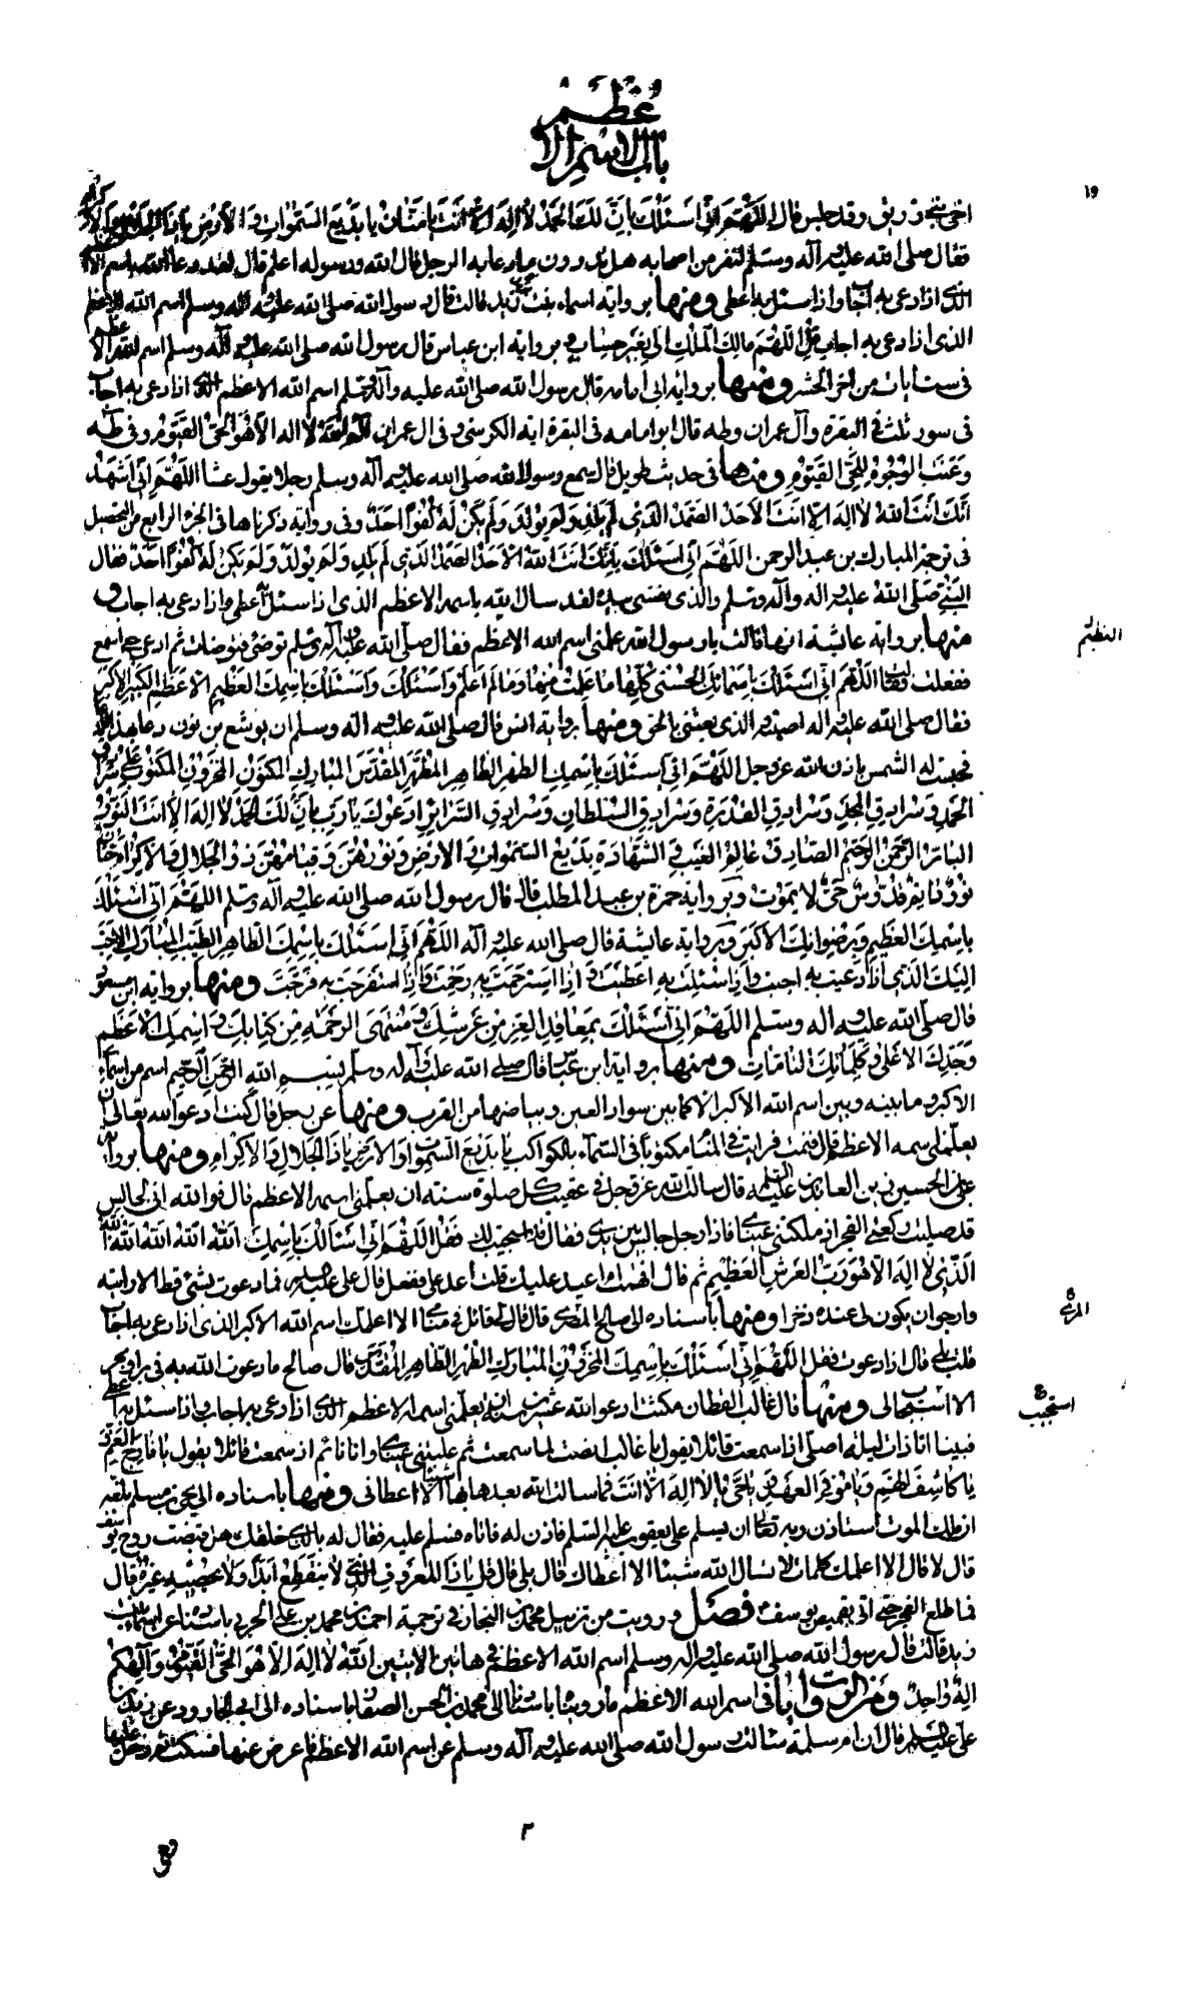 باب الاسم الاعظم
١٩
اخى بنى زريق وقد جلس قال اللَّهُمَّ اِنِّى اَسْئَلُكَ بِاَنَّ لَكَ الْحَمْدُ لَا اِلَهَ اِلَّا اَنْتَ يَا مَنَّانُ يَا بَدِيعَ السَّمٰوَاتِ وَالْاَرْضِ يَا ذَا الْجَلَالِ وَالْاِكْرَامِ
فقال صلى الله عليه وآله وسلم لنفر من اصحابه هل تدرون ما دعا به الرجل قال الله ورسوله اعلم قال لقد دعا الله باسمه الا
الذى اذا دعى به اجاب واذا سئل به اعطى ومنها برواية اسماء بنت زيد قالت قال رسول الله صلى الله عليه وآله وسلم اسم الله الاعظم
الذى اذا دعى به اجاب قل اللَّهُمَّ مالِكَ الْمُلْكِ الى بِغَيْرِ حِسَابٍ وبرواية ابن عباس قال رسول الله صلى الله عليه وآله وسلم اسم الله الاعظم
فى ست ايات من اخر الحشر ومنها برواية ابى امامه قال رسول الله صلى الله عليه وآله وسلم اسم الله الاعظم الذى اذا دعى به اجاب
فى سور ثلث فى البقرة وآل عمران وطه قال ابوامامه فى البقرة اية الكرسى وفى ال عمران الم الله لا اله الا هو الحى القيوم وفى طه
وَعَنَتِ الْوُجُوهُ لِلْحَىِّ الْقَيُّومِ ومنها فى حديث طويل قال سمع رسول الله صلى الله عليه وآله وسلم رجلا يقول عشاء اَللَّهُمَّ اِنِّى اَشْهَدُ
اَنَّكَ اَنْتَ اللهُ لَا اِلَهَ اِلَّا اَنْتَ الْاَحَدُ الصَّمَدُ الَّذِى لَمْ يَلِدْ وَلَمْ يُولَدْ وَلَمْ يَكُنْ لَهُ كُفُوًا اَحَدٌ وفى رواية ذكرناها فى الجزء الرابع من التحصيل
فى ترجمة المبارك بن عبد الرحمن اَللَّهُمَّ اِنِّى اَسْئَلُكَ بِاَنَّكَ اَنْتَ اللهُ الْاَحَدُ الصَّمَدُ الَّذِى لَمْ يَلِدْ وَلَمْ يُولَدْ وَلَمْ يَكُنْ لَهُ كُفُوًا اَحَدٌ فقال
النبى صلى الله عليه واله وسلم والذى نفسى بيده لقد سال الله باسمه الاعظم الذى اذا سئل به اعطى واذا دعى به اجاب و
منها برواية عائشة انها قالت يا رسول الله علمنى اسم الله الاعظم فقال صلى الله عليه وآله وسلم توضئى فتوضات ثم ادعى حتى اسمع
ففعلت فقالت اَللَّهُمَّ اِنِّى اَسْئَلُكَ بِاَسْمَائِكَ الْحُسْنَى كُلِّهَا مَا عَلِمْتُ مِنْهَا وَمَا لَمْ اَعْلَمْ وَاَسْئَلُكَ بِاسْمِكَ الْعَظِيمِ الْاَعْظَمِ الْكَبِيرِ الْاَكْبَرِ
العظيم
فقال صلى الله عليه واله اصبته والذى بعثنى بالحق ومنها برواية انس قال صلى الله عليه واله وسلم ان يوشع بن نون دعا بهذا
فحبست له الشمس باذن الله عز وجل اَللَّهُمَّ اِنِّى اَسْئَلُكَ بِاسْمِكَ الطُّهْرِ الطَّاهِرِ الْمُطَهَّرِ الْمُقَدَّسِ الْمُبَارَكِ الْمَكْنُونِ الْمَخْزُونِ الْمَكْتُوبِ عَلَى سُرَادِقِ
الْحَمْدِ وَسُرَادِقِ الْمَجْدِ وَسُرَادِقِ الْقُدْرَةِ وَسُرَادِقِ السُّلْطَانِ وَسُرَادِقِ السَّرَائِرِ اَدْعُوكَ يَا رَبِّ بِاَنَّ لَكَ الْحَمْدُ لَا اِلَهَ اِلَّا اَنْتَ النُّورُ
الْبَارُّ الرَّحْمٰنُ الرَّحِيمُ الصَّادِقُ عَالِمُ الْغَيْبِ وَالشَّهَادَةِ بَدِيعُ السَّمٰوَاتِ وَالْاَرْضِ وَنُورُهُنَّ وَقَيَّامُهُنَّ ذُو الْجَلَالِ وَالْاِكْرَامِ حَنَّانٌ
نُورٌ دَائِمٌ قُدُّوسٌ حَىٌّ لَا يَمُوتُ وبرواية حمزة بن عبد المطلب قال قال رسول الله صلى الله عليه وآله وسلم اَللَّهُمَّ اِنِّى اَسْئَلُكَ
بِاسْمِكَ الْعَظِيمِ وَرِضْوَانِكَ الْاَكْبَرِ وبرواية عائشة قال صلى الله عليه وآله اَللَّهُمَّ اِنِّى اَسْئَلُكَ بِاسْمِكَ الطَّاهِرِ الطَّيِّبِ الْمُبَارَكِ الْاَحَبِّ
اِلَيْكَ الَّذِى اِذَا دُعِيتَ بِهِ اَجَبْتَ وَاِذَا سُئِلْتَ بِهِ اَعْطَيْتَ وَاِذَا اسْتُرْحِمْتَ بِهِ رَحِمْتَ وَاِذَا اسْتُفْرِجْتَ بِهِ فَرَّجْتَ ومنها برواية ابن مسعود
قال صلى الله عليه واله وسلم اَللَّهُمَّ اِنِّى اَسْئَلُكَ بِمَعَاقِدِ الْعِزِّ مِنْ عَرْشِكَ وَمُنْتَهَى الرَّحْمَةِ مِنْ كِتَابِكَ وَاسْمِكَ الْاَعْظَمِ
وَجَدِّكَ الْاَعْلَى وَكَلِمَاتِكَ التَّامَّاتِ ومنها برواية ابن عباس قال صلى الله عليه وآله وسلم بسم الله الرحمن الرحيم اسم من اسماء الله
الاكبر وما بينه وبين اسم الله الاكبر الا كما بين سواد العين وبياضها من القرب ومنها عن رجل قال كنت ادعو الله تعالى ان
يعلمنى اسمه الاعظم قال فنمت فرايت فى المنام مكتوبا فى السماء بالكواكب يَا بَدِيعَ السَّمٰوَاتِ وَالْاَرْضِ يَا ذَا الْجَلَالِ وَالْاِكْرَامِ ومنها برواية
على بن الحسين زين العابدين عليه السلم قال سالت الله عز وجل فى عقيب كل صلوة سنة ان يعلمنى اسمه الاعظم قال فوالله انى لجالس
قد صليت ركعتى الفجر اذ ملكتنى عيناى فاذا رجل جالس بين يدى فقال قد استجيب لك فقل اَللَّهُمَّ اِنِّى اَسْأَلُكَ بِاسْمِكَ اَللهُ اَللهُ اَللهُ اَللهُ اَللهُ
الَّذِى لَا اِلَهَ اِلَّا هُوَ رَبُّ الْعَرْشِ الْعَظِيمِ ثم قال افهمت ام اعيد عليك قلت اعد على ففعل قال على عليه السلم فما دعوت بشىء قط الا رايته
وارجو ان يكون لى عنده ذخرا ومنها باسناده الى صالح المرى قال قال لى قائل فى منامى الا اعلمك اسم الله الاكبر الذى اذا دعى به اجاب
المرى
قلت بلى قال اذا دعوت فقل اَللَّهُمَّ اِنِّى اَسْئَلُكَ بِاسْمِكَ الْمَخْزُونِ الْمُبَارَكِ الطُّهْرِ الطَّاهِرِ الْمُقَدَّسِ قال صالح ما دعوت الله به فى بر او بحر
الا استجيب لى ومنها قال غالب القطان مكثت ادعو الله عشرين سنة ان يعلمنى اسمه الاعظم الذى اذا دعى به اجاب واذا سئل به اعطى
استجيب
فبينا انا ذات ليلة اصلى اذ سمعت قائلا يقول يا غالب انصت لما سمعت ثم غلبتنى عيناى وانا نائم اذ سمعت قائلا يقول يَا فَارِجَ الْغَمِّ
يَا كَاشِفَ الْهَمِّ وَيَا مُوفِىَ الْعَهْدِ يَا حَىُّ لَا اِلَهَ اِلَّا اَنْتَ فما سالت الله بعدها بها شيئا الا اعطانى ومنها باسناده الى يحيى بن مسلم بلغه
ان ملك الموت استاذن ربه تعالى ان يسلم على يعقوب عليه السلم فاذن له فاتاه فسلم عليه فقال له بالذى خلقك هل قبضت روح يوسف
قال لا قال الا اعلمك كلمات لا تسال الله شيئا الا اعطاك قال بلى قال قل يَا ذَا الْمَعْرُوفِ الَّذِى لَا يَنْقَطِعُ اَبَدًا وَلَا يُحْصِيهِ غَيْرُهُ قال
فما طلع الفجر حتى اتى بقميص يوسف فصل ورويت من تذييل محمد بن النجار فى ترجمة احمد بن محمد بن على الحربى باسناده عن اسماء بنت
زيد قالت قال رسول الله صلى الله عليه واله وسلم اسم الله الاعظم فى هاتين الايتين اَللهُ لَا اِلَهَ اِلَّا هُوَ الْحَىُّ الْقَيُّومُ وَاِلٰهُكُمْ
اِلٰهٌ وَاحِدٌ ومن الروايات فى اسم الله الاعظم ما رويناه باسنادنا الى محمد بن الحسن الصفار باسناده الى ابى الجارود عن زيد بن
على عليه السلم قال ان ام سلمة سالت رسول الله صلى الله عليه وآله وسلم عن اسم الله الاعظم فاعرض عنها فسكت ثم دخل عليها
٣